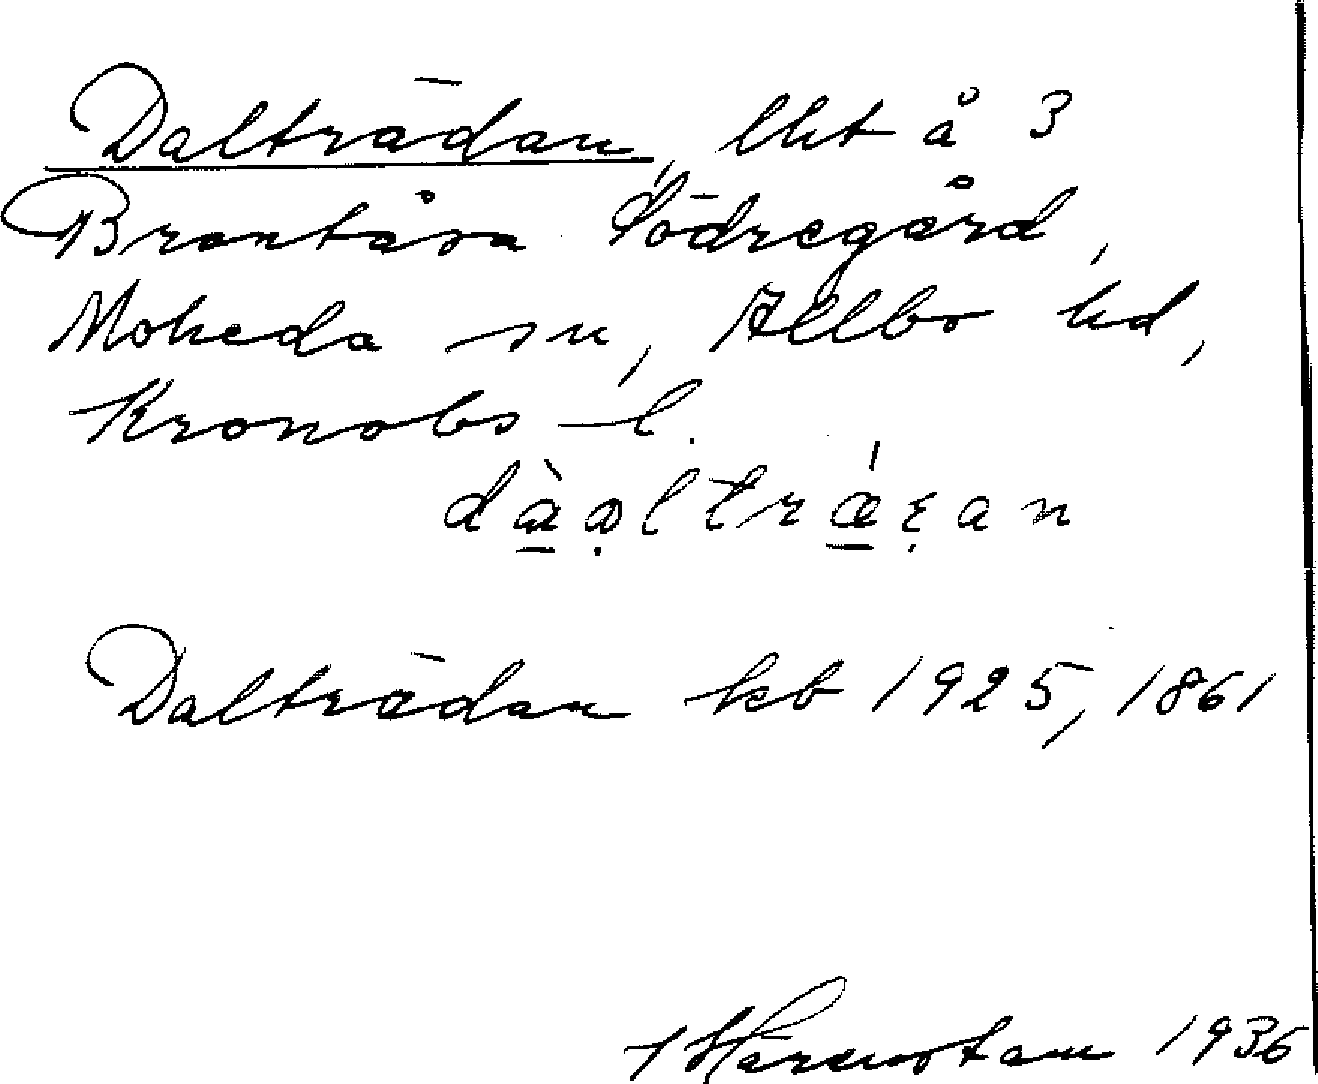 Dalträdan, lht å 3
Brantåsa Södregård,
Moheda sn, Allbo hd,
Kronobs l.
dàɑltrǽɛan
Dalträdan kb 1925, 1861
1936